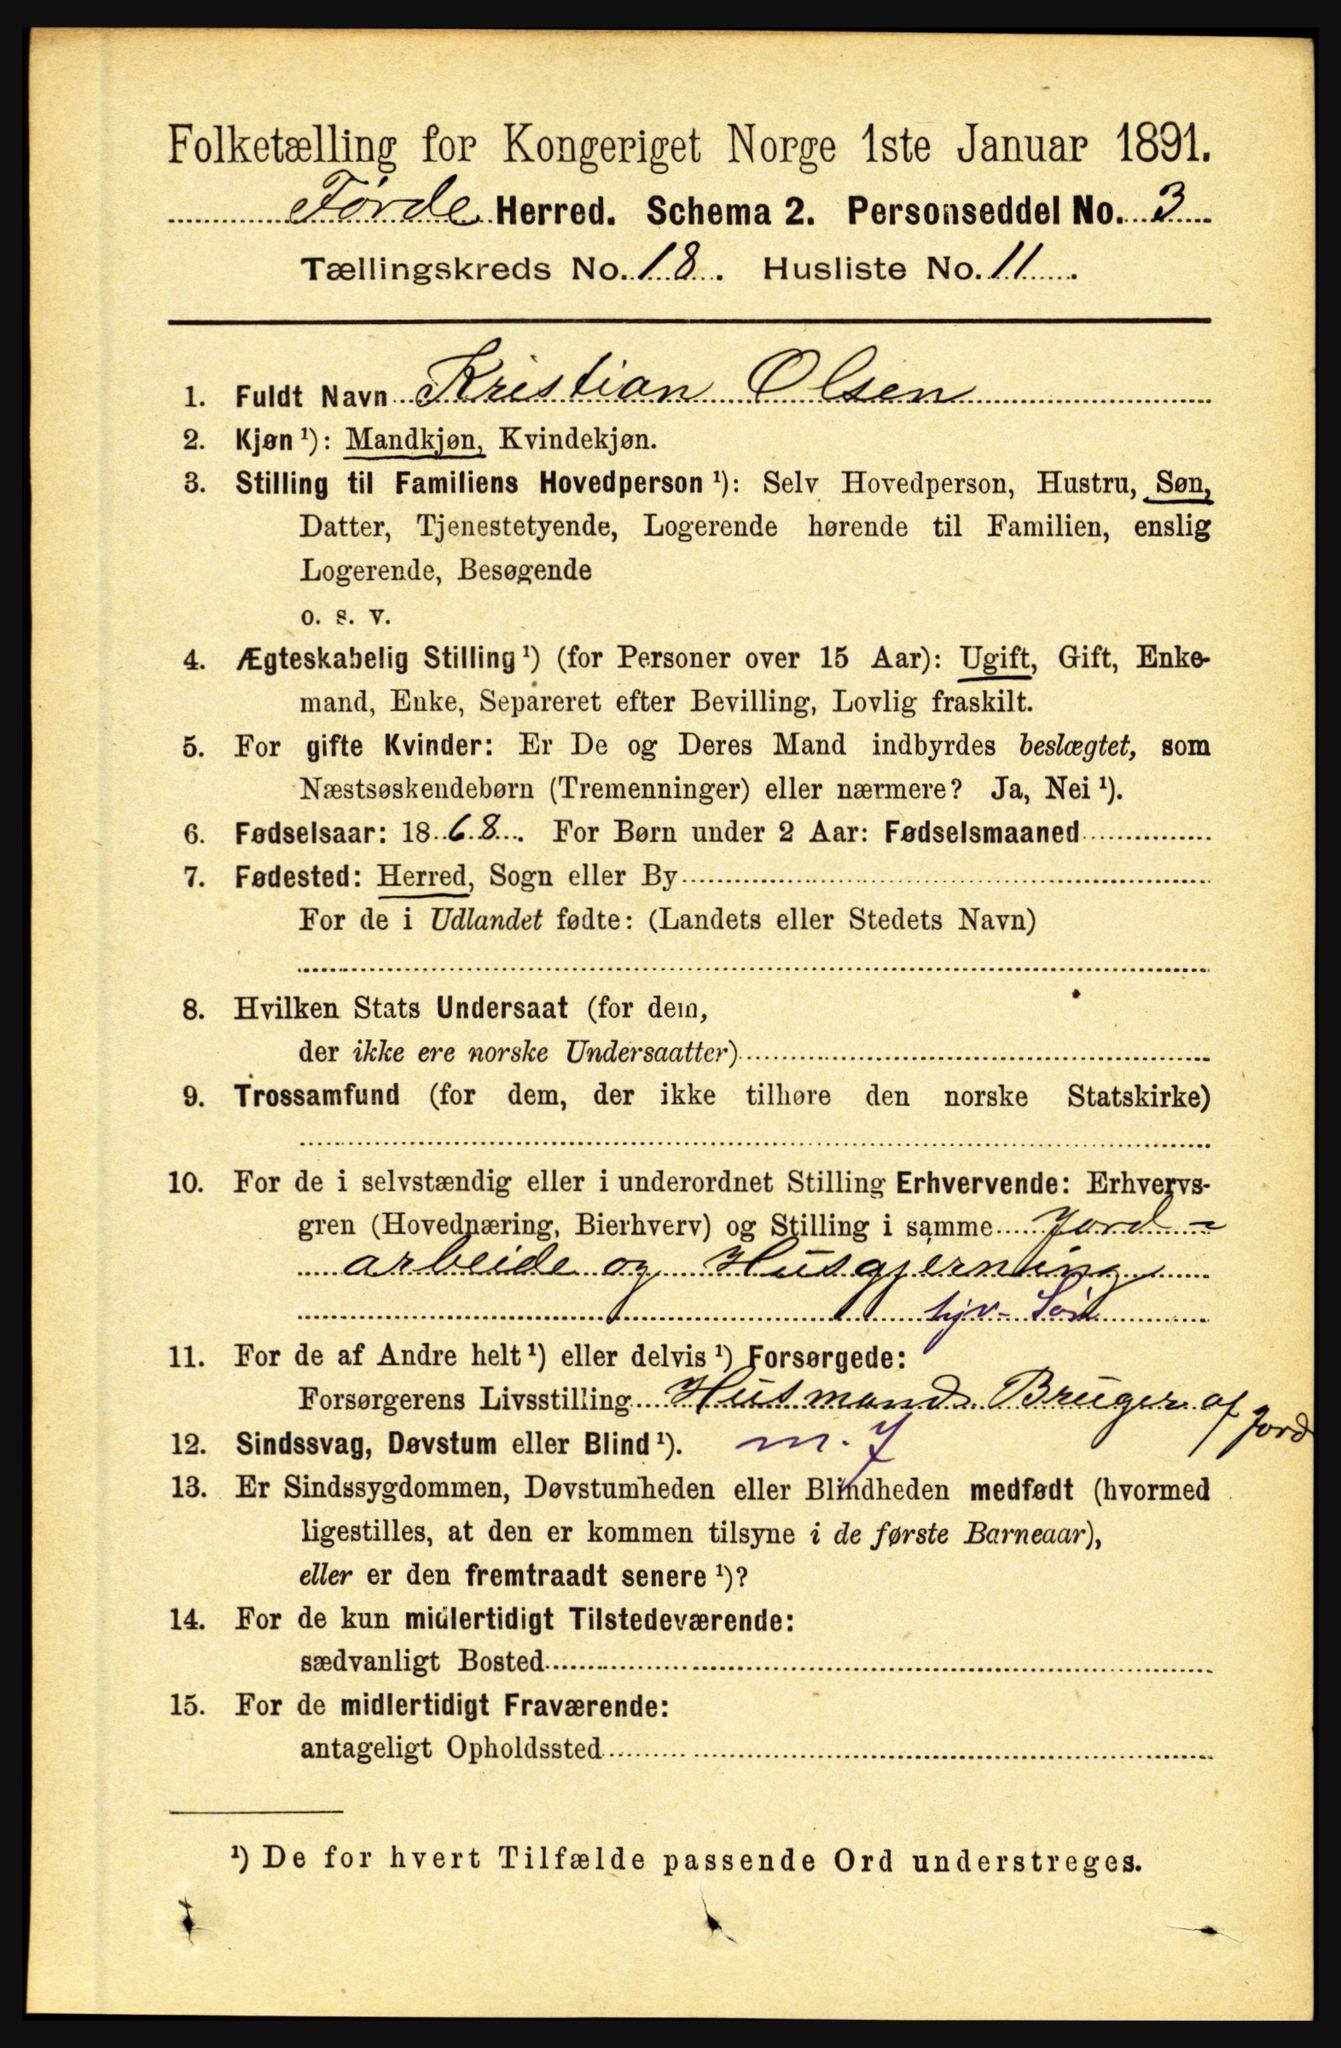 Folketælling for Kongeriget Norge 1ste Januar 1891.
Førde Herred. Schema 2. Personseddel No. 3
Tællingskreds No. 18. Husliste No. 11.
1. Fuldt Navn Kristian Olsen
2. Kjøn ¹): Mandkjøn, Kvindekjøn.
3. Stilling til Familiens Hovedperson ¹): Selv Hovedperson, Hustru, Søn,
Datter, Tjenestetyende, Logerende hørende til Familien, enslig
Logerende, Besøgende
o. s. v.
4. Ægteskabelig Stilling ¹) (for Personer over 15 Aar): Ugift, Gift, Enke-
mand, Enke, Separeret efter Bevilling, Lovlig fraskilt.
5. For gifte Kvinder: Er De og Deres Mand indbyrdes beslægtet, som
Næstsøskendebørn (Tremenninger) eller nærmere? Ja, Nei ¹).
6. Fødselsaar: 1868. For Børn under 2 Aar: Fødselsmaaned
7. Fødested: Herred, Sogn eller By
For de i Udlandet fødte: (Landets eller Stedets Navn)
8. Hvilken Stats Undersaat (for dem,
der ikke ere norske Undersaatter)
9. Trossamfund (for dem, der ikke tilhøre den norske Statskirke)
10. For de i selvstændig eller i underordnet Stilling Erhvervende: Erhvervs-
gren (Hovednæring, Bierhverv) og Stilling i samme Jord-
arbeide og Husgjerning
hjv- Søn
11. For de af Andre helt ¹) eller delvis ¹) Forsørgede:
Forsørgerens Livsstilling Husmand Bruger af Jord
12. Sindssvag, Døvstum eller Blind ¹). m. J
13. Er Sindssygdommen, Døvstumheden eller Blindheden medfødt (hvormed
ligestilles, at den er kommen tilsyne i de første Barneaar),
eller er den fremtraadt senere ¹)?
14. For de kun midlertidigt Tilstedeværende:
sædvanligt Bosted
15. For de midlertidigt Fraværende:
antageligt Opholdssted
¹) De for hvert Tilfælde passende Ord understreges.